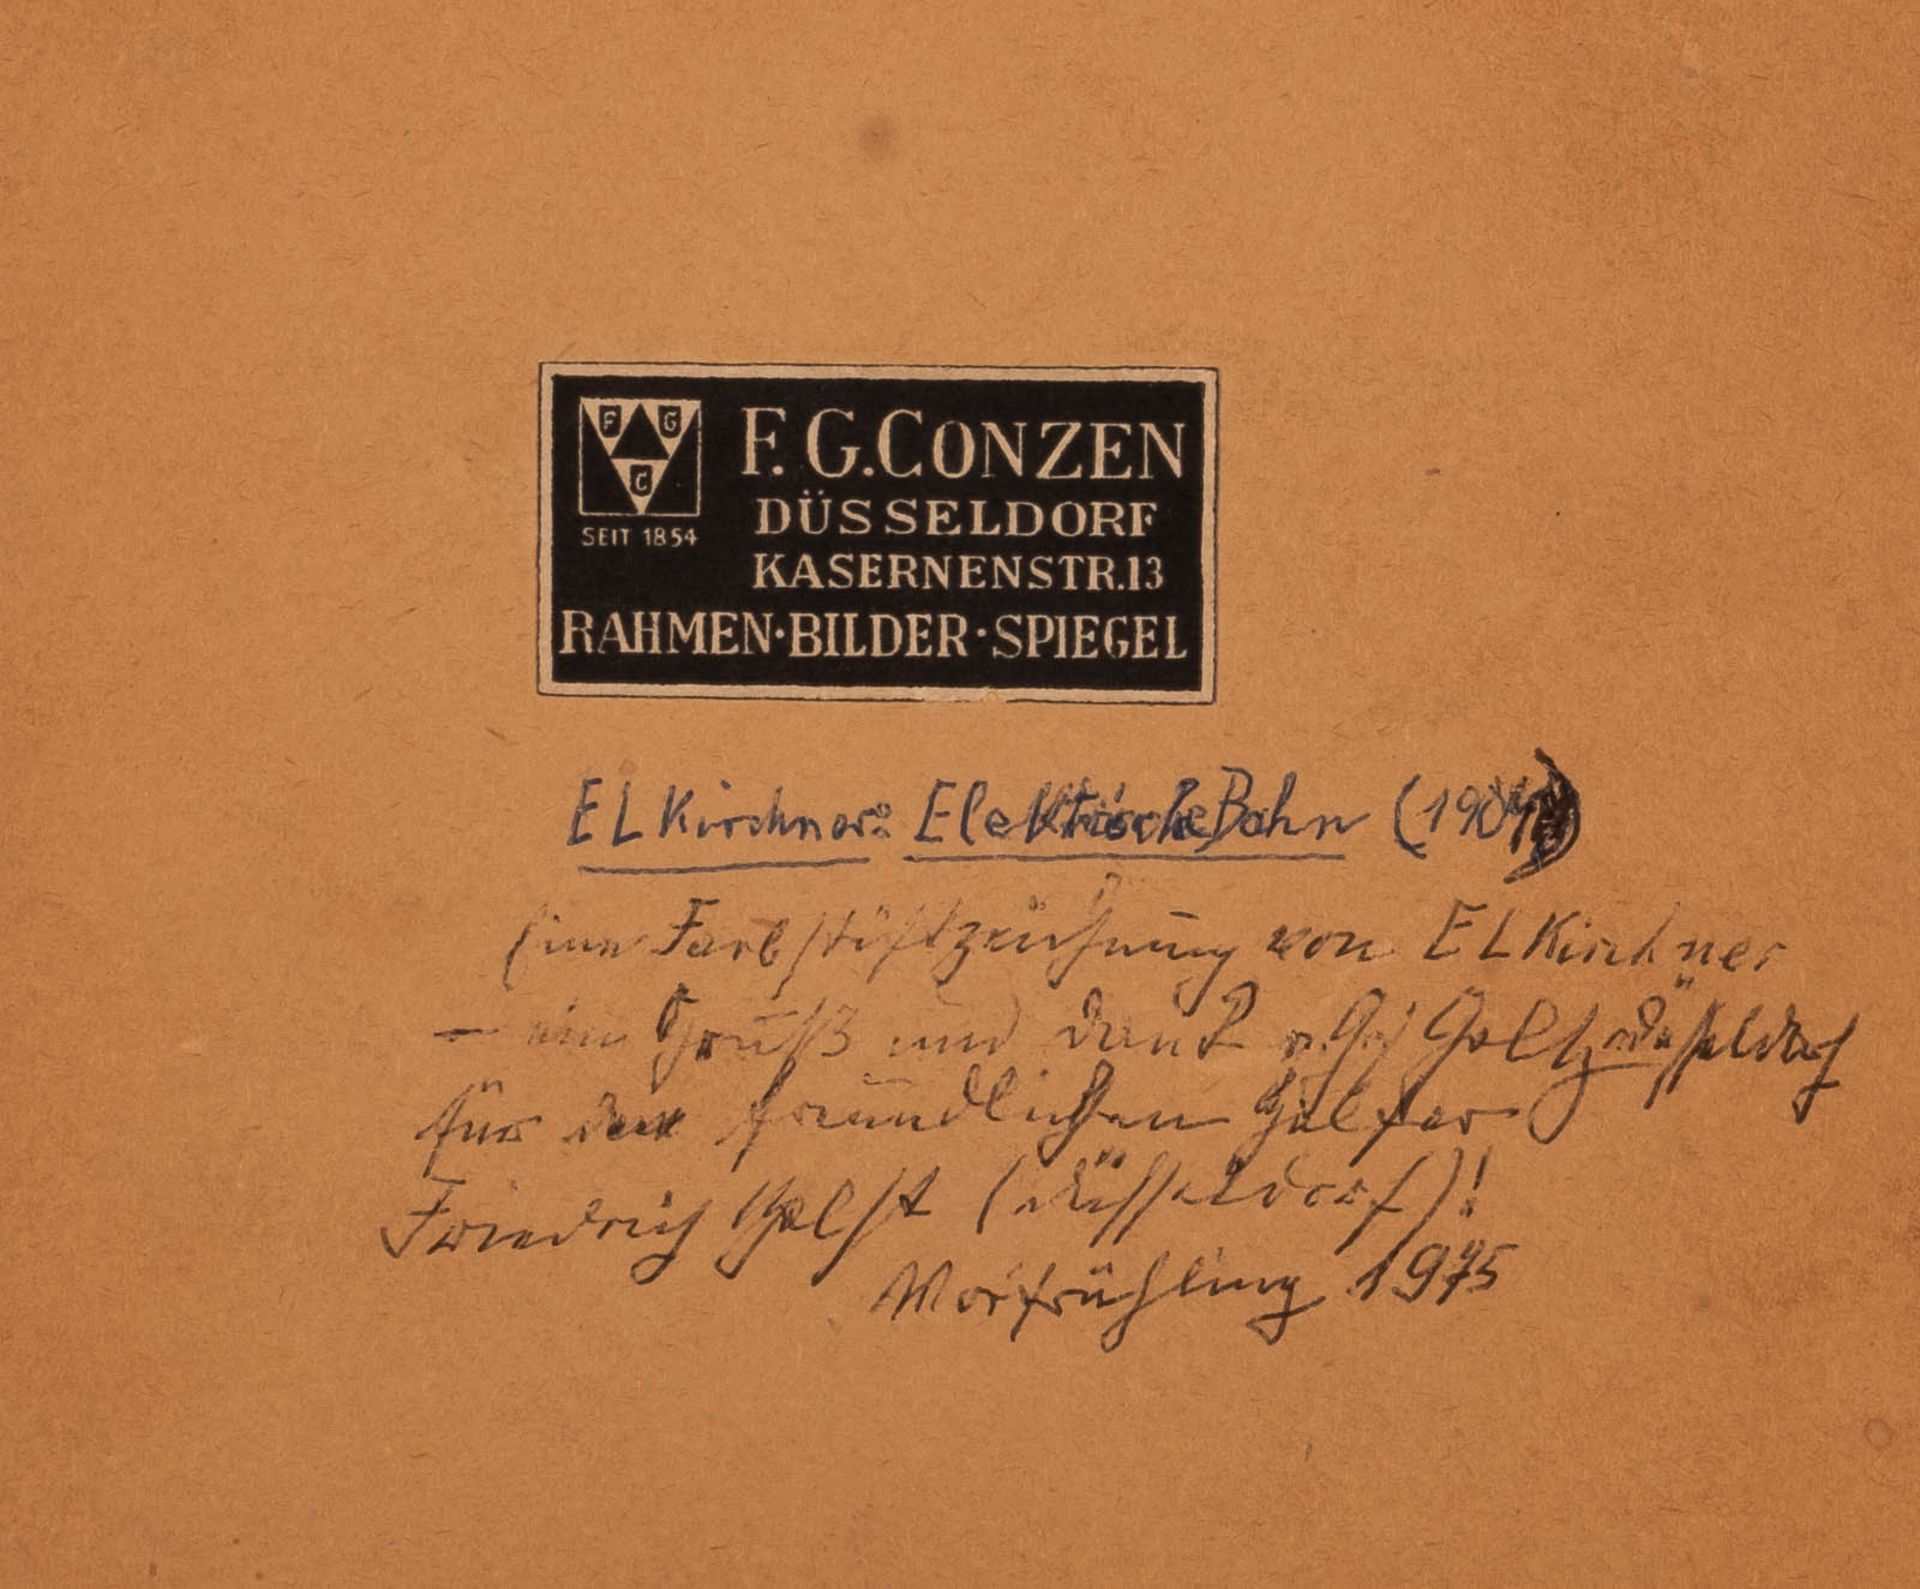 F G
C
SEIT 1854
F. G. CONZEN
DÜSSELDORF
KASERNENSTR. 13
RAHMEN · BILDER · SPIEGEL
E L Kirchner: Elektrische Bahn
Eine Farbstiftzeichnung von E L Kirchner
— ein Gruß und Dank
für den freundlichen Helfer
Friedrich Holst (Düsseldorf)!
Vorfrühling 1975